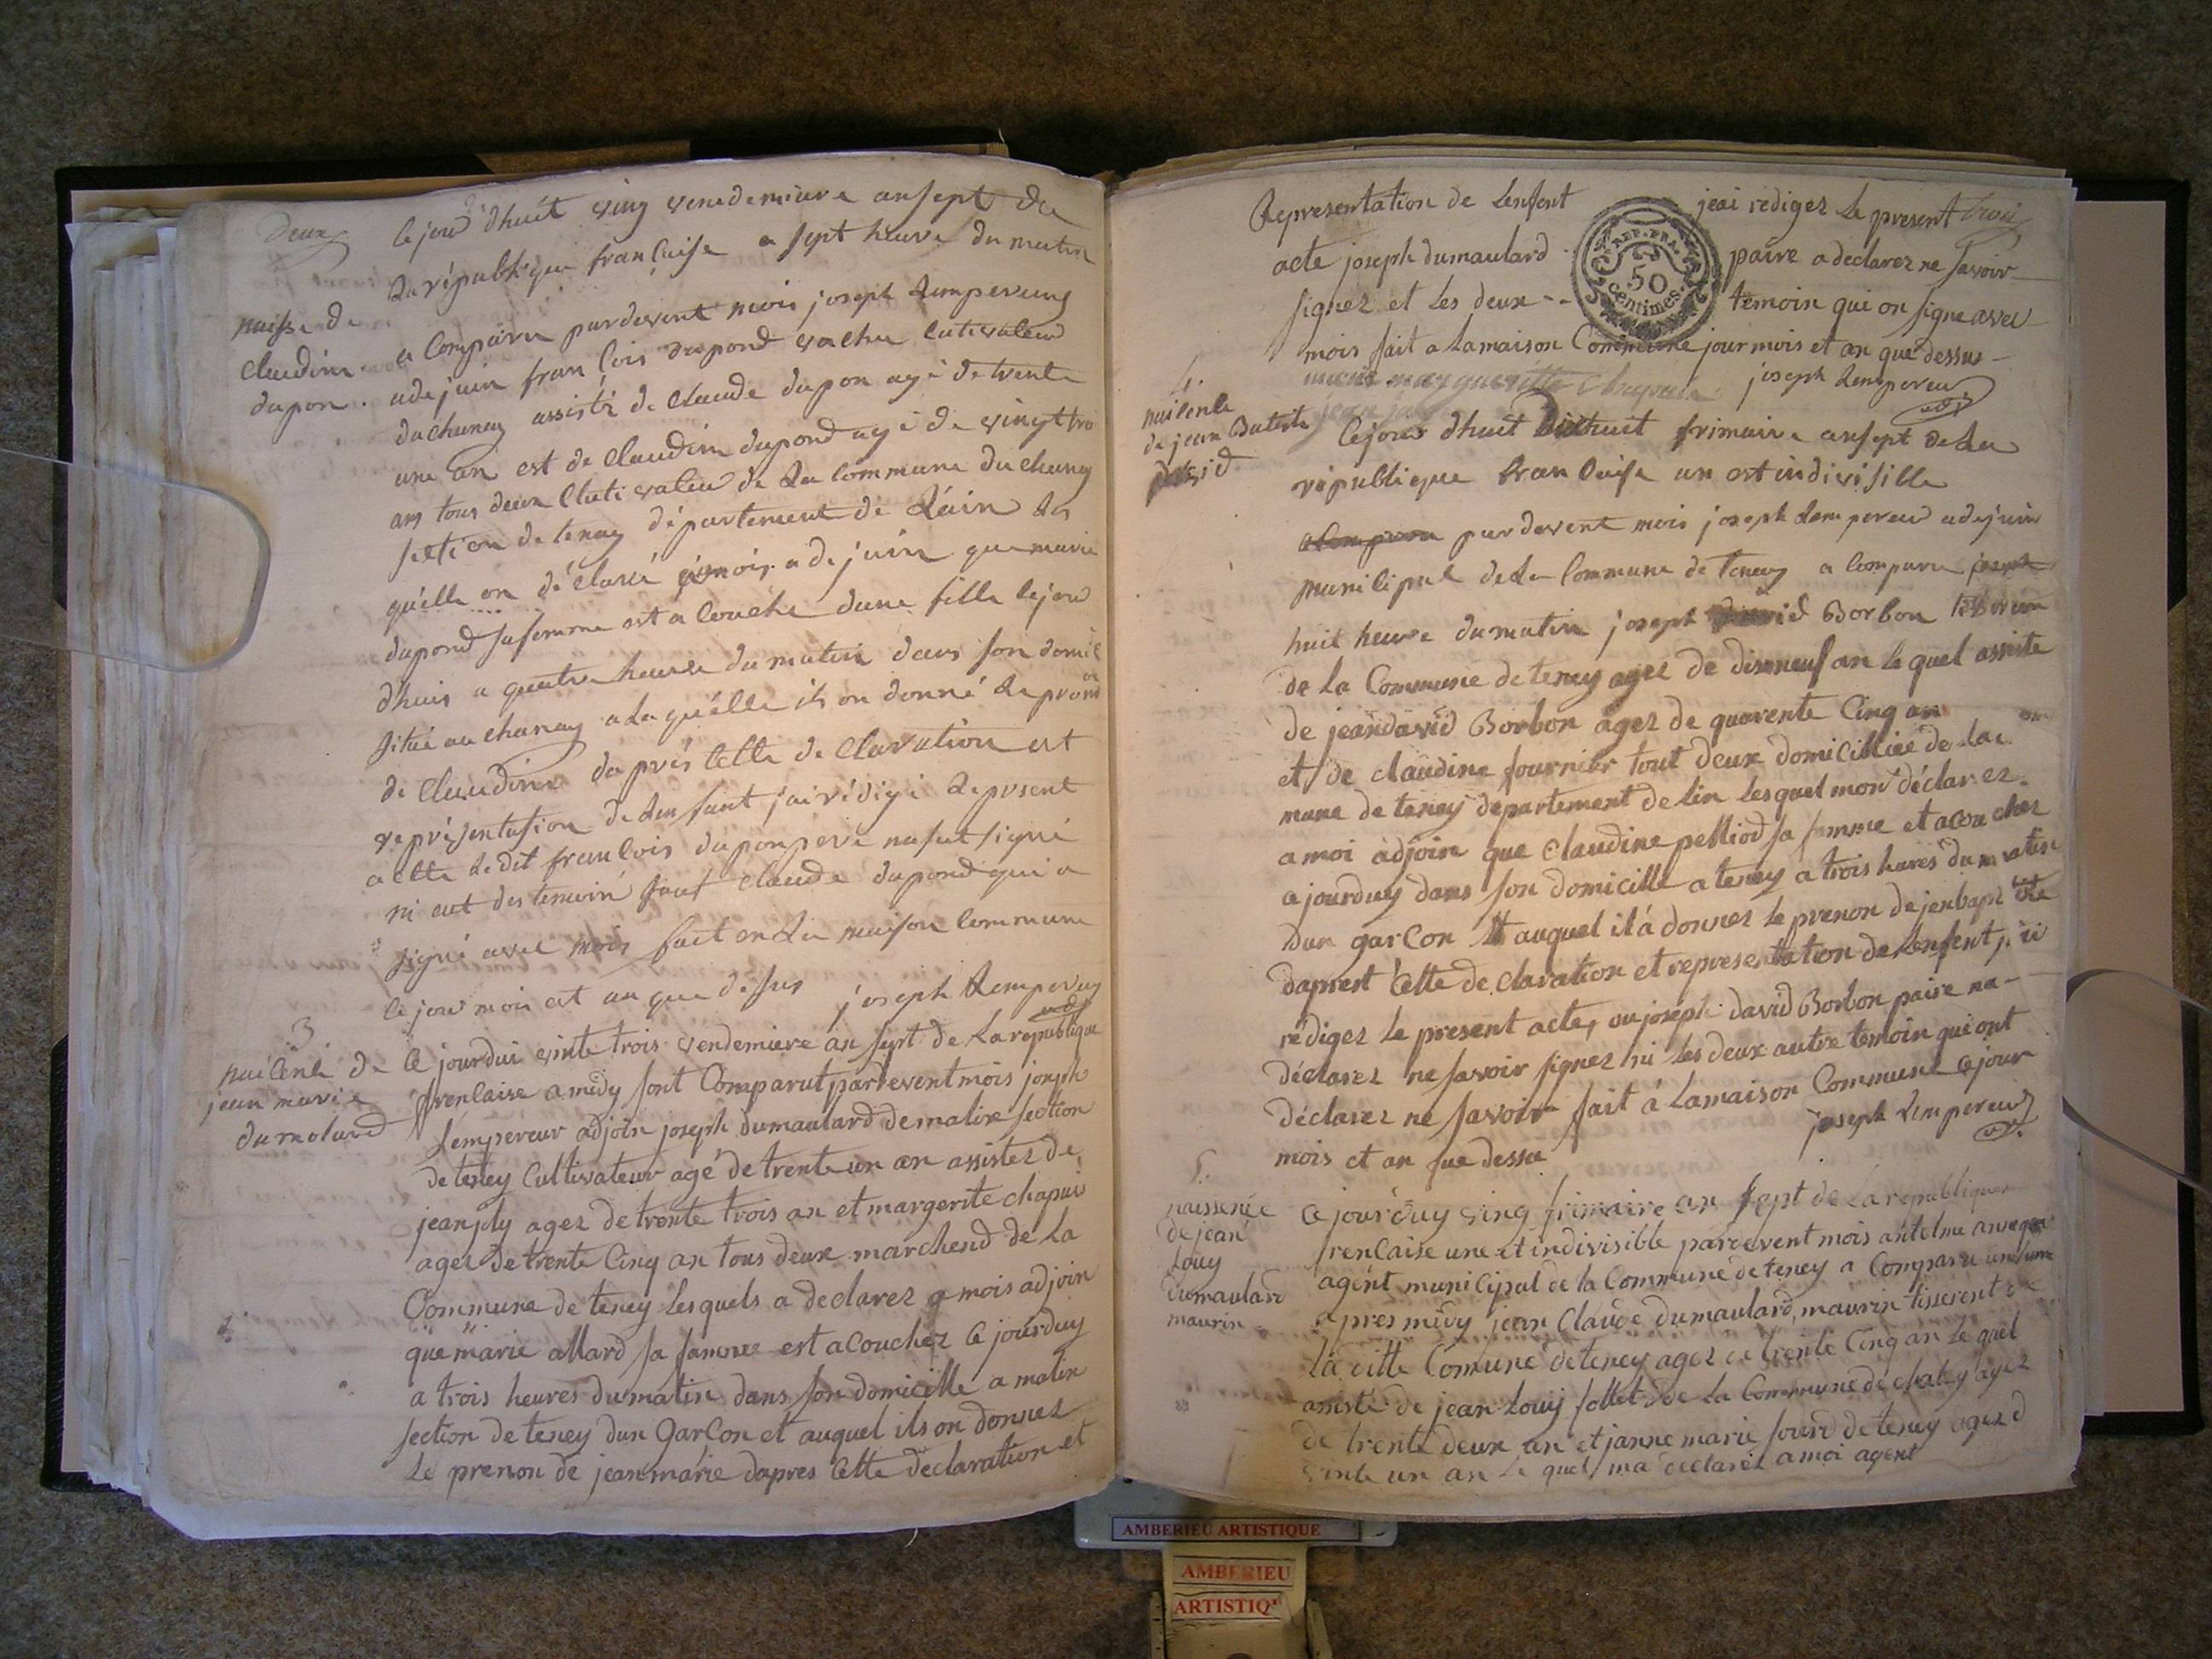 Deux
ce jour dhuit ving vendemiaire an sept de
La république françaisse a sept heure du matin
naisse de
claudine
dupon.
a comparu pardevent mois joseph Lempereur
adejoin francois dupond vachu cutivateur
du chanay assisté de claude dupon agé de trente
une an est de claudine dupond agé de vingt troi
ans tous deux Cluti vateur de La commune du chanay
section de tenay département de L'ain Les
quelle on déclaré a mois adejoin que marie
dupond sa femme est a couché dune fille le jour
dhuis a quatre heure du matin dans son domicil
situé au chanay a La quélle ils on donné Le prenon
de Claudine daprés cette de claration est
représentasion de Lenfant jai rédigé Le present
acte Ledit francois dupon pere na sut signé
ni aut des temoin sauf claude dupond qui a
signé avec mois fait en La maison commune
ce jour mois est an que desus joseph Lempereur
adj
3.
naicence de
jean marie
dumolard
Ce jourdui vinte trois vendemiere an sept de La republique
frencaise a midy sont Comparut pardevent mois joseph
Lempereur adjoin joseph dumaulard de malix section
de teney Cultivateur agé de trente un an assistez de
jean joly agez de trente trois an et margerite chapuis
agez de trente Cinq an tous deux marchend de La
Commune de teney lesquels a declarez a mois adjoin
que marie allard sa famme est acouchez Ce jourduy
a trois heures du matin dans son domicille a malix
section de teney dun GarCon et auquel ils on donnez
Le prenon de jean marie dapres Cette declaration et
Representation de Lenfent jeai redigez Le present trois
acte joseph dumaulard paire a declarez ne savoir
REP. FRA.
50
centimes.
signez et Les deux -- temoin qui on signe avec
mois fait a La maison Commune jour mois et an que dessus -
margueritte Chapuis joseph Lempereur
adj
4.
naicence
de jean Batiste
david
Ce jour dhuit Dixhuit frimaire an sept de La
république francaise un est indivisille
a compru pardevent mois joseph Lempereur adejoin
municipal de La Commune de Tenay a comparu joseph
huit heure du matin joseph david Borbon
de La Commune de teney agez de dixneuf an le quel assiste
de jean david Borbon agez de quarente Cinq an
et de claudine fournier tout deux domicilliee de La com
mune de teney departement de lin lesquel mon déclarez
a moi adjoin que Claudine pelliod sa famme et acouchez
ajourduy dans son domicille a teney a trois heures du matin
Dun garCon et auquel il á donnez le prenon de jenbapt iste
daprest Cette declaration et representation de Lenfent jeai
redigez le present acte, ou joseph david Borbon paire na-
déclarez ne savoir signez ni les deux autre temoin qui ont
déclarez ne savoir fait á La maison Commune Ce jour
mois et an que dessu joseph Lempereur
adj.
5.
naissence
de jean
Louy
dumaulard
maurin
Ce jourduy ving frimaire an sept de La republique
frencaise une et indivisible pardevent mois antelme
agént municipal de la Commune de teney a Comparu une heure
apres midy jean Claude dumaulard, maurin tisserent de
La ditte Comune de teney agez de trente Cinq an Le quel
assisté de jean Louy follet de La Commune de chaley agez
de trente deux an et janne marie sourd de teney agez d
vinte un an Le quel ma declarez a moi agent
AMBERIEU ARTISTIQUE
AMBERIEU
ARTISTIQ